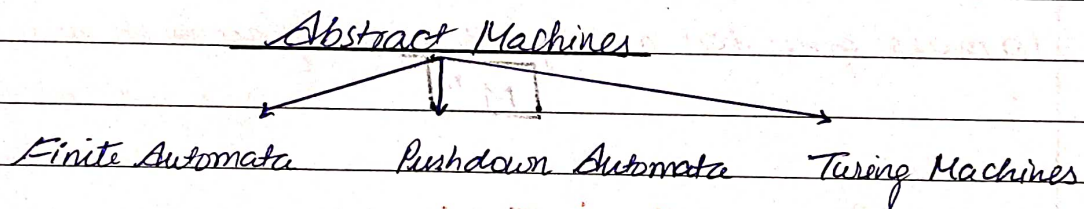 Abstract Machines
Finite Automata Pushdown Automata Turing Machines